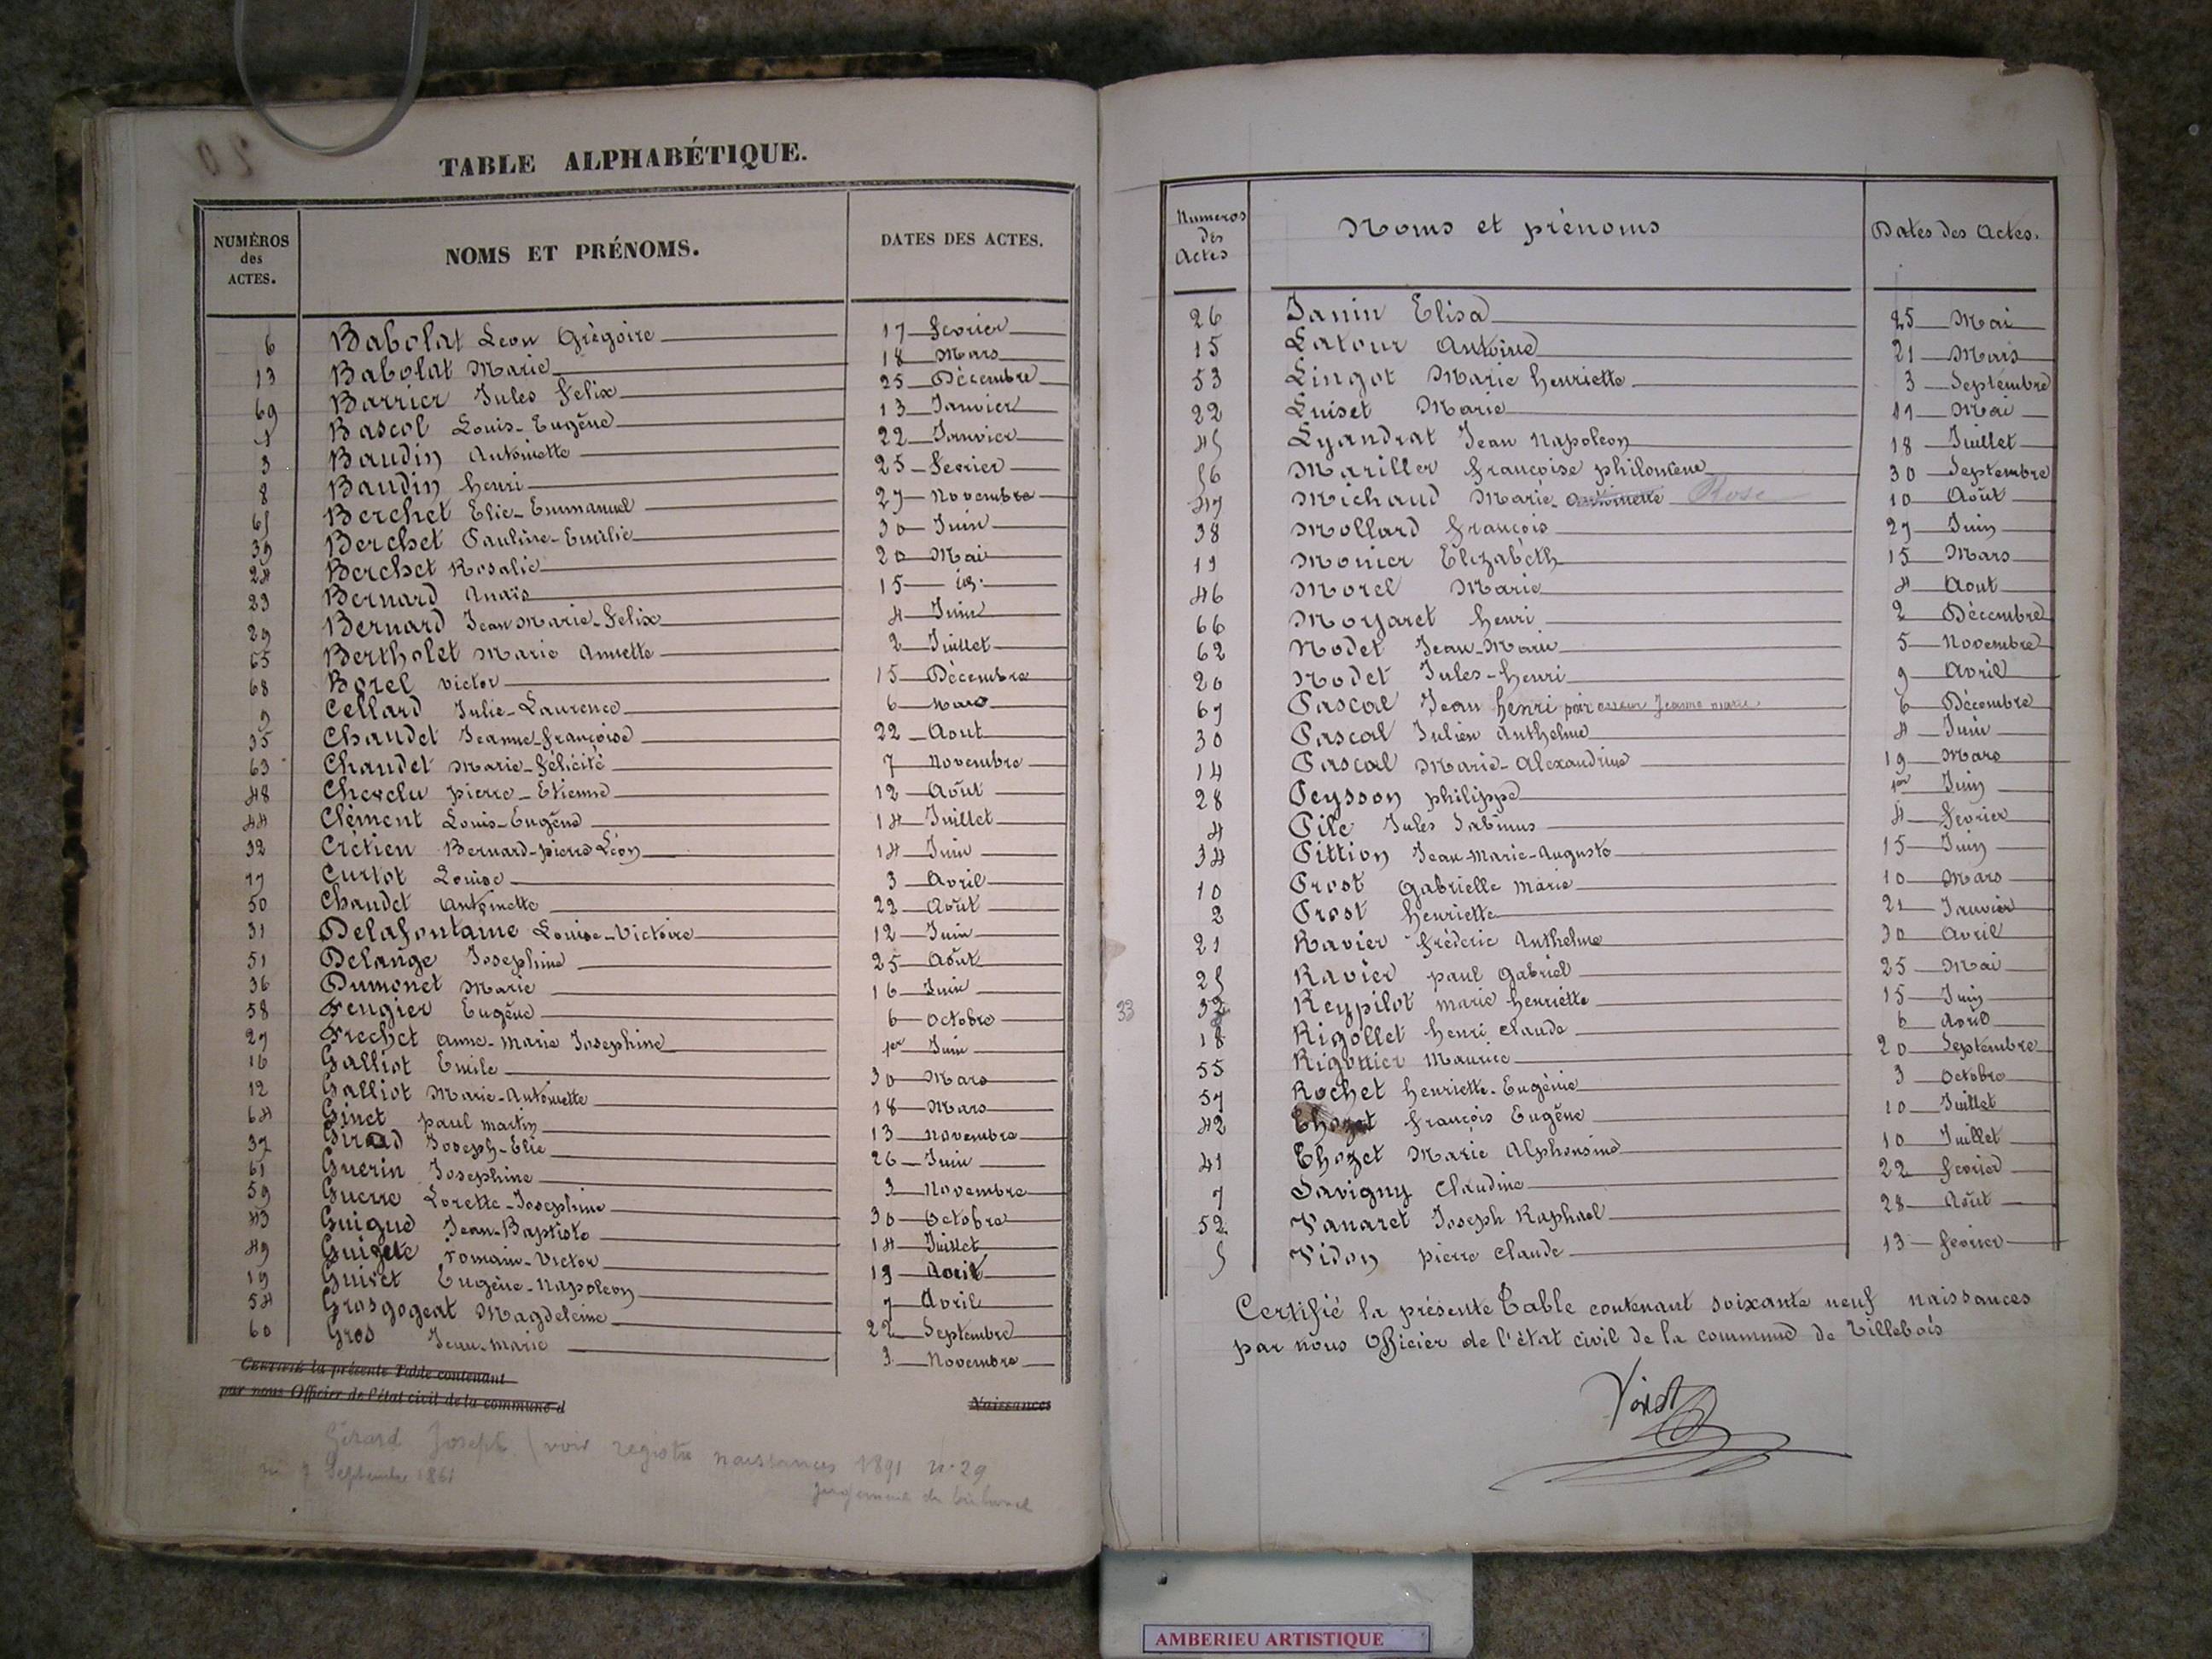 TABLE ALPHABÉTIQUE.
NUMÉROS des ACTES. NOMS ET PRÉNOMS. DATES DES ACTES.
6 Babolat Leon Grégoire 17 fevrier
13 Babolat Marie 18 Mars
69 Barrier Jules Felix 25 Décembre
1 Bascol Louis-Eugène 13 Janvier
3 Baudin Antoinette 22 Janvier
8 Baudin henri 25 fevrier
65 Berchet Elie-Emmanuel 27 Novembre
39 Berchet Pauline-Emilie 30 Juin
24 Berchet Rosalie 20 Mai
23 Bernard Anaïs 15 id.
29 Bernard Jean Marie-Felix 4 Juin
65 Bertholet Marie Annette 2 Juillet
68 Borel victor 15 Décembre
9 Cellard Julie-Laurence 6 Mars
35 Chaudet Jeanne-françoise 22 Aout
63 Chaudet Marie-félicité 7 Novembre
48 Chevelu pierre-Etienne 12 Août
44 Clément Louis-Eugène 14 Juillet
32 Crétien Bernard-pierre Léon 14 Juin
17 Curtot Louise 3 Avril
50 Chaudet Antoinette 22 Août
31 Delafontaine Louise-Victoire 12 Juin
51 Delange Josephine 25 Août
36 Dumonet Marie 16 Juin
58 Feugier Eugène 6 Octobre
27 Frechet Anne-Marie Josephine 1er Juin
16 Galliot Emile 30 Mars
12 Galliot Marie-Antoinette 18 Mars
64 Ginet paul martin 13 Novembre
37 Giraud Joseph-Elie 26 Juin
61 Guerin Josephine 3 Novembre
59 Guerre Lorette-Josephine 30 Octobre
43 Guigue Jean-Baptiste 14 Juillet
49 romain-Victor 19 Avril
19 Guiset Eugène-Napoleon 7 Avril
54 Grosgogeat Magdeleine 22 Septembre
60 Gros Jean-marie 3 Novembre
Certifié la présente Table contenant
par nous Officier de l'état civil de la commune d Naissances
Gérard Joseph (voir registre naissances 1891 n° 29
né 7 Septembre 1861 jugement du tribunal
Numeros des Actes Noms et prénoms Dates des Actes.
26 Janin Elisa 25 Mai
15 Latour Antoine 21 Mars
53 Lingot Marie henriette 3 Septembre
22 Luiset Marie 11 Mai
45 Lyandrat Jean Napoleon 18 Juillet
56 Mariller françoise philomène 30 Septembre
47 Michaud Marie-Antoinette Rose 10 Août
38 Mollard françois 27 Juin
11 Monier Elizabéth 15 Mars
46 Morel Marie 4 Aout
66 Moyaret henri 2 Décembre
62 Nodet Jean-Marie 5 Novembre
20 Nodet Jules-henri 9 Avril
67 Pascal Jean henri Jeanne marie 6 Décembre
30 Pascal Julien Anthelme 4 Juin
14 Pascal Marie-Alexandrine 19 Mars
28 Peysson philippe 1er Juin
4 Pile Jules Sabinus 4 fevrier
34 Pittion Jean-Marie-Auguste 15 Juin
10 Prost Gabrielle Marie 10 Mars
2 Prost henriette 21 Janvier
21 Ravier fréderic Anthelme 30 Avril
25 Ravier paul Gabriel 25 Mai
33 32 Reypilot marie henriette 15 Juin
18 Rigollet henri Claude 6 Avril
55 Rigottier Maurice 20 Septembre
57 Rochet henriette-Eugénie 3 Octobre
42 Thozet françois Eugène 10 Juillet
41 Thozet Marie Alphonsine 10 Juillet
7 Savigny Claudine 22 fevrier
52 Vanaret Joseph Raphael 28 Août
5 Vidon pierre Claude 13 fevrier
Certifié la présente Table contenant soixante neuf naissances
par nous Officier de l'état civil de la commune de Villebois
AMBERIEU ARTISTIQUE